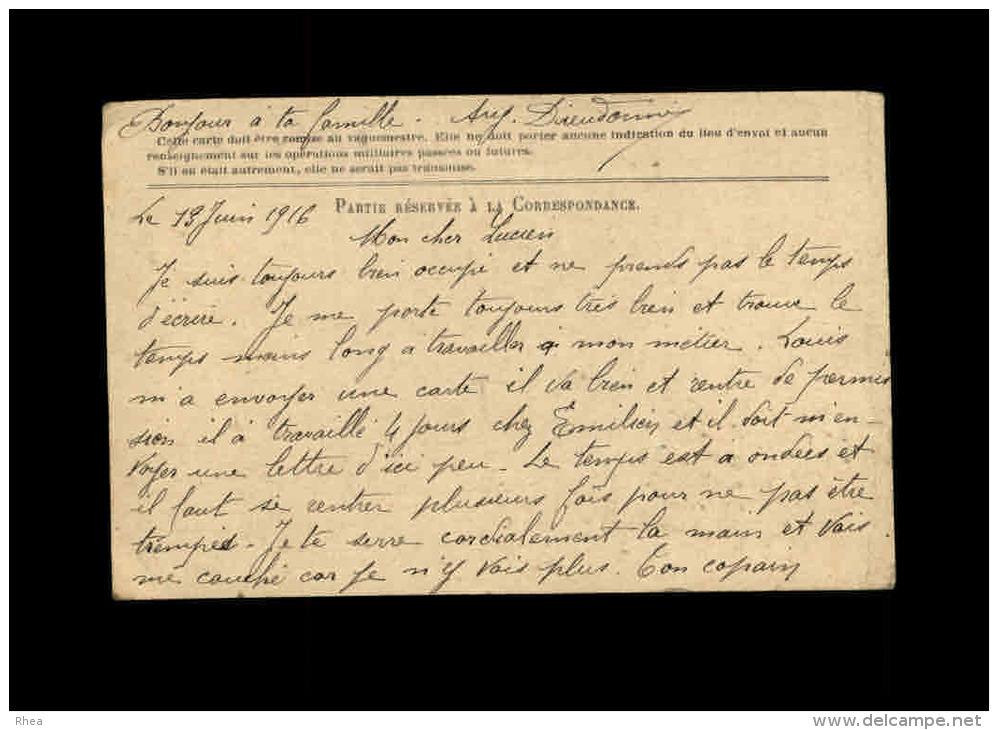 Bonjour à ta famille. Aug. Dieudonné
Cette carte doit être remise au vaguemestre. Elle ne doit porter aucune indication du lieu d'envoi et aucun
renseignement sur les opérations militaires passées ou futures.
S'il en était autrement, elle ne serait pas transmise.
Le 19 Juin 1916 PARTIE RÉSERVÉE À LA CORRESPONDANCE.
Mon cher Lucien
Je suis toujours bien occupé et ne prends pas le temps
d'écrire. Je me porte toujours très bien et trouve le
temps moins long a travailler a mon métier. Louis
m'a envoyer une carte il va bien et rentre de permis
sion il à travaillé 4 jours chez Emilien et il doit m'en-
voyer une lettre d'ici peu. Le temps est a ondées et
il faut se rentrer plusieurs fois pour ne pas être
trempés. Je te serre cordialement la main et vais
me couché car je n'y vois plus. Ton copain
Rhea
www.delcampe.net